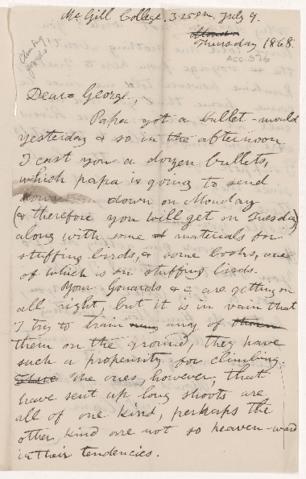 McGill College, 3.25 P.M. July 9.
Thursday 1868.
ACC. 576
Dear George,
Papa got a bullet-mould
yesterday & so in the afternoon
I cast you a dozen bullets,
which papa is going to send
down on Monday
(& therefore you will get on Tuesday)
along with some materials for
stuffing birds, & some books, one
of which is on stuffing birds.
Your Gourards & c are getting on
all right, but it is in vain that
I try to train any of
them on the ground, they have
such a propensity for climbing.
The ones, however, that
have sent up long shoots are
all of one kind, perhaps the
other kind are not so heaven-ward
in their tendencies.